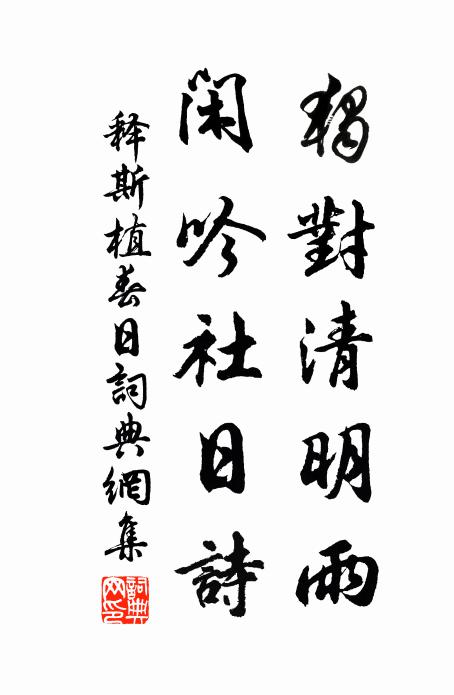 獨對清明雨
閑吟社日詩
释斯植春日詞典網集
詞典網印